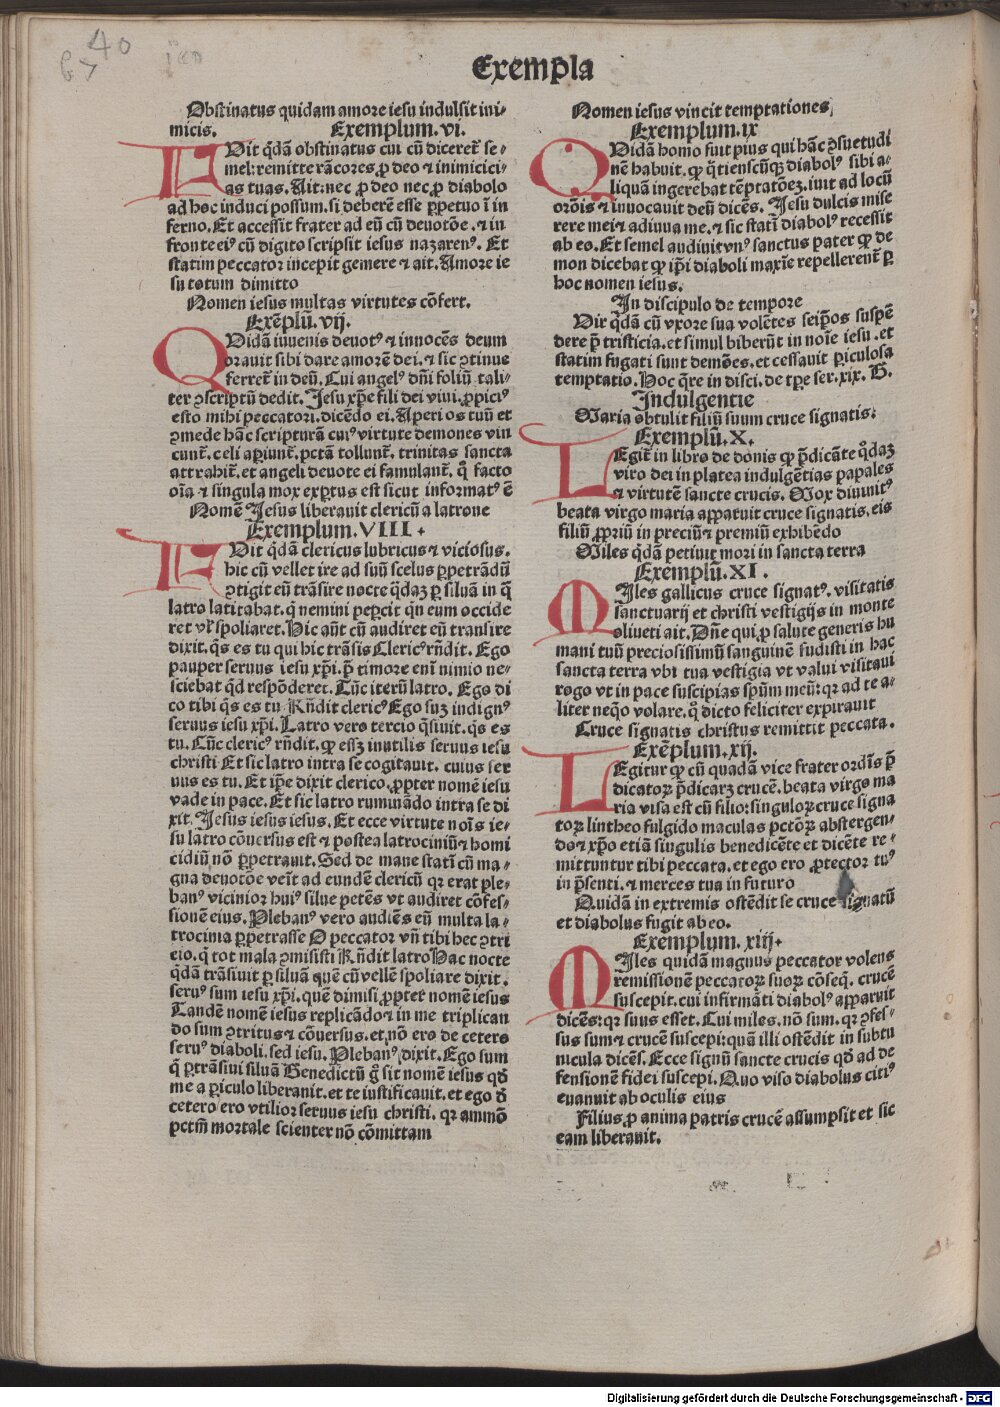 40
b7
Exempla
Obstinatus quidam amore iesu indulsit ini⸗
micis. Exemplum. vi.
FVit qdā obstinatus cui cū diceret̄ se⸗
mel: remitte rācores ꝓ deo ⁊ inimicici⸗
as tuas. Ait: nec ꝓ deo nec ꝓ diabolo
ad hoc induci possum. si deberē esse ꝑpetuo ī in
ferno. Et accessit frater ad eū cū deuotōe. ⁊ in
fronte eiꝰ cū digito scripsit iesus nazarenꝰ. Et
statim peccator incepit gemere ⁊ ait. Amore ie
su totum dimitto
Nomen iesus multas virtutes cōfert.
Exēplū. vij.
QVidā iuuenis deuotꝰ ⁊ innocēs deum
orauit sibi dare amorē dei. ⁊ sic ↄtinue
ferret̄ in deū. Cui angelꝰ dn̄i foliū tali⸗
ter ↄscriptū dedit. Jesu xp̄e fili dei viui. ꝓpiciꝰ
esto mihi peccatori. dicēdo ei. Aperi os tuū et
ↄmede hāc scripturā cuiꝰ virtute demones vin
cunt̄. celi aꝑiunt̄. pctā tollunt̄. trinitas sancta
attrahit̄. et angeli deuote ei famulant̄. q̄ facto
oīa ⁊ singula mox exꝑtus est sicut informatꝰ ē
Nomē Jesus liberauit clericū a latrone
Exemplum. VIII.
FVit qdā clericus lubricus ⁊ viciosus.
hic cū vellet ire ad suū scelus ꝑpetrādū
ↄtigit eū trāsire nocte qdaꝫ ꝑ siluā in q̄
latro latitabat. q̄ nemini peꝑcit qn̄ eum occide
ret vl̄ spoliaret. Hic aūt cū audiret eū transire
dixit. q̄s es tu qui hic trāsis Clericꝰ rn̄dit. Ego
pauper seruus iesu xp̄i. p̄ timore eni nimio ne⸗
sciebat qd respōderet. Tūc iterū latro. Ego di
co tibi q̄s es tu Rn̄dit clericꝰ Ego suꝫ indignꝰ
seruus iesu xp̄i. Latro vero tercio q̄siuit. q̄s es
tu. Tūc clericꝰ rn̄dit. ꝙ esseꝫ inutilis seruus iesu
christi Et sic latro intra se cogitauit. cuius ser
uus es tu. Et ip̄e dixit clerico. ꝓpter nomē iesu
vade in pace. Et sic latro ruminādo intra se di
xit. Jesus iesus iesus. Et ecce virtute noīs ie⸗
su latro cōuersus est ⁊ postea latrociniū ⁊ homi
cidiū nō ꝑpetrauit. Sed de mane statī cū ma⸗
gna deuotōe venīt ad eundē clericū qꝛ erat ple⸗
banꝰ vicinior huiꝰ silue petēs vt audiret cōfes⸗
sionē eius. Plebanꝰ vero audiēs eū multa la⸗
trocinia ꝑpetrasse O peccator vn̄ tibi hec ↄtri
cio. q̄ tot mala ↄmisisti Rn̄dit latro Hac nocte
qdā trāsiuit ꝑ siluā quē cū vellē spoliare dixit.
seruꝰ sum iesu xp̄i. quē dimisi ꝓpter nomē iesus
Tandē nomē iesus replicādo ⁊ in me triplican
do sum ↄtritus ⁊ cōuersus. et nō ero de cetero
seruꝰ diaboli. sed iesu. Plebanꝰ dixit. Ego sum
q̄ ꝑtrāsiui siluā Benedictū g̊ sit nomē iesus qd̄
me a ꝑiculo liberauit. et te iustificauit. et ego d̄
cetero ero vtilior seruus iesu christi. qꝛ ammō
pctm̄ mortale scienter nō cōmittam
Nomen iesus vincit temptationes
Exemplum. ix
QVidā homo fuit pius qui hāc ↄsuetudi
nē habuit. ꝙ q̄tiensctūqꝫ diabolꝰ sibi a⸗
liquā ingerebat tēptatōeꝫ. iuit ad locū
orōis ⁊ inuocauit deū dicēs. Jesu dulcis mise
rere mei ⁊ adiuua me. ⁊ sic statī diabolꝰ recessit
ab eo. Et semel audiuit vnꝰ sanctus pater ꝙ de
mon dicebat ꝙ ip̄i diaboli maxīe repellerent̄ ꝑ
hoc nomen iesus.
In discipulo de tempore
Vir qdā cū vxore sua volētes seip̄os suspē
dere p̄ tristicia. et simul biberūt in noīe iesu. et
statim fugati sunt demōes. et cessauit ꝑiculosa
temptatio. Hoc q̄re in disci. de tp̄e ser. xix. B.
Indulgentie
Maria obtulit filiū suum cruce signatis:
Exemplū. X.
LEgit̄ in libro de donis ꝙ p̄dicāte qdaꝫ
viro dei in platea indulgētias papales
⁊ virtutē sancte crucis. Mox diuinitꝰ
beata virgo maria apparuit cruce signatis. eis
filiū ꝓpriū in preciū ⁊ premiū exhibēdo
Miles qdā petiuit mori in sancta terra
Exemplū. XI.
MIles gallicus cruce signatꝰ. visitatis
sanctuarij et christi vestigijs in monte
oliueti ait. Dn̄e qui ꝓ salute generis hu
mani tuū preciosissimū sanguinē fudisti in hac
sancta terra vbi tua vestigia vt valui visitaui
rogo vt in pace suscipias spūm meū: qꝛ ad te a⸗
liter neqo volare. q̊ dicto feliciter expirauit
Cruce signatis christus remittit peccata.
Exēplum. xij.
LEgitur ꝙ cū quadā vice frater ordīs p̄
dicatoꝝ p̄dicarꝫ crucē. beata virgo ma
ria visa est cū filio: singuloꝝ cruce signa
toꝝ lintheo fulgido maculas pctōꝝ abstergen⸗
do ⁊ xp̄o etiā singulis benedicēte et dicēte re⸗
mittuntur tibi peccata. et ego ero ꝓtector tuꝰ
in p̄senti. ⁊ merces tua in futuro
Quidā in extremis ostēdit se cruce signatū
et diabolus fugit ab eo.
Exemplum. xiij.
MIles quidā magnus peccator volens
remissionē peccatoꝝ suoꝝ cōseq̄. crucē
suscepit. cui infirmāti diabolꝰ apparuit
dicēs: qꝛ suus esset. Cui miles. nō sum. qꝛ ↄfes⸗
sus sum ⁊ crucē suscepi: quā illi ostēdit in subtu
nicula dicēs. Ecce signū sancte crucis qd̄ ad de
fensionē fidei suscepi. Quo viso diabolus citiꝰ
euanuit ab oculis eius
Filius ꝓ anima patris crucē assumpsit et sic
eam liberauit.
Digitalisierung gefördert durch die Deutsche Forschungsgemeinschaft - DFG